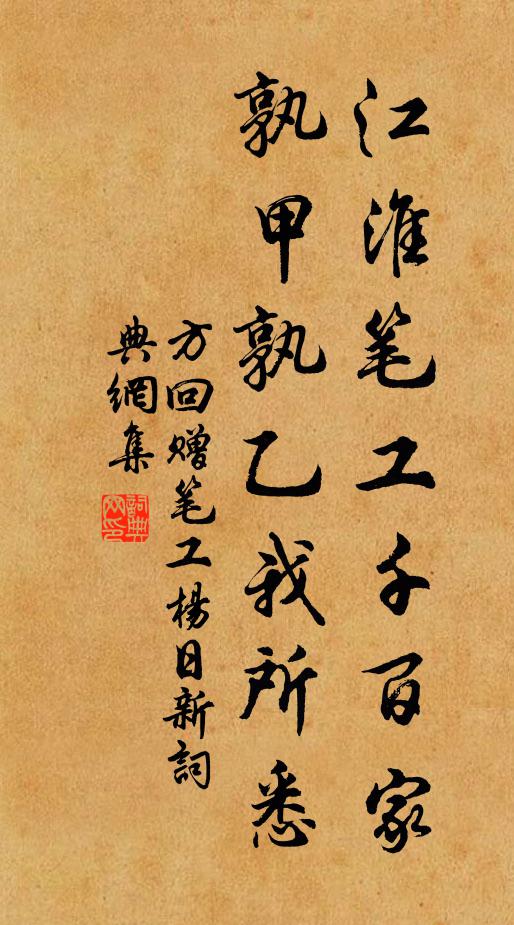 江淮笔工千百家
孰甲孰乙我所悉
方回赠笔工楊日新詞
典網集
詞典网印